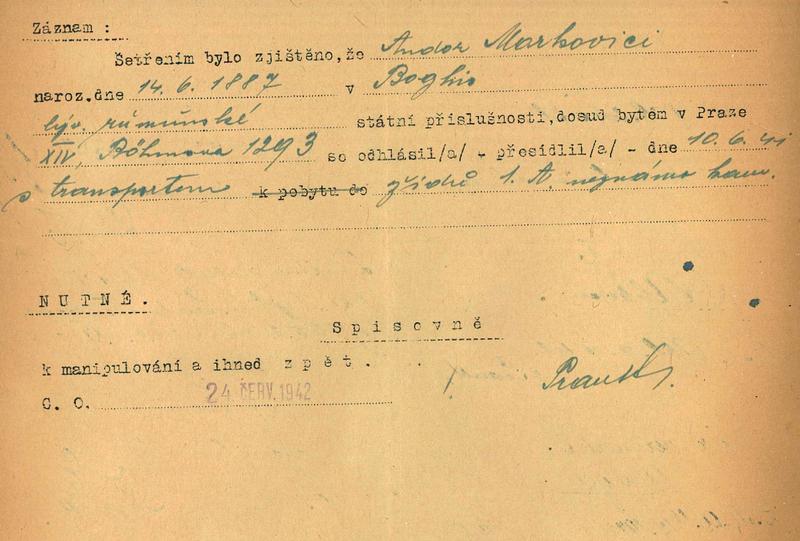 Záznam :
Šetřením bylo zjištěno, že Andor Markovici
naroz.dne 14. 6. 1887 v Boghis
býv. rumunské státní příslušnosti, dosud bytem v Praze
XIV, Böhmova 1293 se odhlásil/a/ - přesídlil/a/ - dne 10. 6. 41
s transportem k pobytu do židů 1. A, neznámo kam.
NUTNÉ.
Spisovně
k manipulování a ihned zpět.
C. O. 24 ČERV. 1942